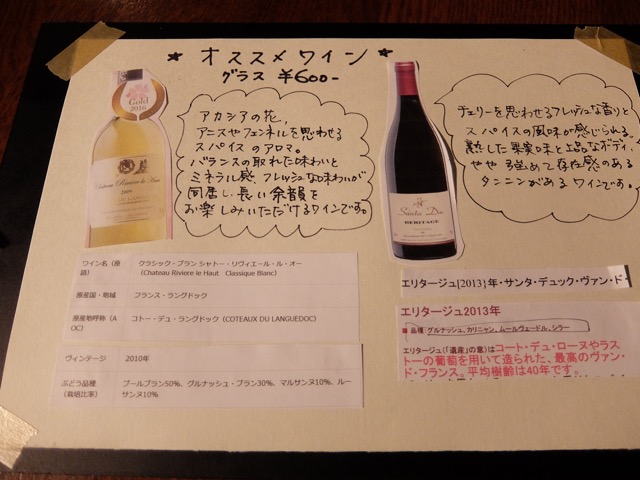 ★ オススメワイン ★
グラス ¥600-
Gold
2016
Château Rivière le Haut
アカシアの花、
アニスやフェンネルを思わせる
スパイスのアロマ。
バランスの取れた味わいと
ミネラル感、フレッシュな味わいが
同居し、長い余韻を
お楽しみいただけるワインです。
Santa Duc
HERITAGE
チェリーを思わせるフレッシュな香りと
スパイスの風味が感じられる。
熟した果実味と上品なボディ、
やや強めで存在感のある
タンニンがあるワインです。
ワイン名（原語）
クラシック・ブラン シャトー・リヴィエール・ル・オー
（Chateau Riviore le Haut　Classique Blanc）
原産国・地域
フランス・ラングドック
原産地呼称（AOC）
コトー・デュ・ラングドック（COTEAUX DU LANGUEDOC）
ヴィンテージ
2010年
ぶどう品種（栽培比率）
ブールブラン50%、グルナッシュ・ブラン30%、マルサンヌ10%、ルーサンヌ10%
エリタージュ[2013]年・サンタ・デュック・ヴァン・ド・
エリタージュ2013年
■ 品種：グルナッシュ、カリニャン、ムールヴェードル、シラー
エリタージュ（「遺産」の意）はコート・デュ・ローヌやラス
トーの葡萄を用いて造られた、最高のヴァン・
ド・フランス。平均樹齢は40年です。